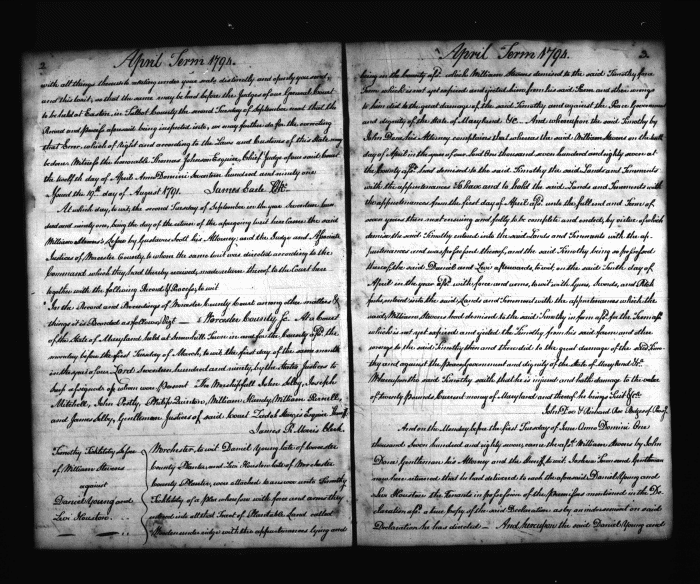 2
April Term 1794.
with all things thereunto relating under your seals distinctly and openly you send,
and this writ, so that the same may be had before the Judges of our General Court
to be held at Easton, in Talbot County the second Tuesday of September next that the
Record and Process aforesaid being inspected into, we may further do for the correcting
that Error, which of Right and according to the Laws and Customs of this State, may
be done. Witness the honorable Thomas Johnson Esquire, Chief Judge of our said Court
the twelfth day of April Anno Domini Seventeen hundred and ninety one
Issued the 19th day of August 1791. James Earle Clk.
At which day, to wit, the second Tuesday of September in the year Seventeen hun-
dred and ninety one, being the day of the return of the aforegoing writ here Came the said
William Stevens's Lessee by his Attorney, and the Judge and Associate
Justices of Worcester County, to whom the same writ was directed according to the
Command which they had thereby received, made return thereof to the Court here
together with the following Record & Process, to wit
In the Record and Proceedings of Worcester County Court among other matters &
things it is Recorded as follows, Vizt. Worcester County Sc. At a Court
of the State of Maryland held at Snowhill Town in and for the County afd. the
monday before the first Tuesday of March, to wit the first day of the same month
in the year of our Lord Seventeen hundred and ninety, by the State's Justices to
keep assigned of whom were Present The Worshipfull John Selby, Joseph
Mitchell, John Postly, William Handy, William Purnell,
and James Selby, Gentlemen Justices of said Court Esquire Sheriff
James R. Morris Clerk.
Timothy Titletity Lessee
of William Stevens
against
Daniel Young and
Levi Houston
Worchester, to wit, Daniel Young late of Worcester
County Planter, and Levi Houston late of Worchester
County Planter, were attached to answer unto Timothy
Titletity of a Plea wherefore with force and arms they
entered into all that Tract of Land called
with the appurtenances lying and
April Term 1794.
3.
being in the County afd. which William Stevens demised to the said Timothy for a
Term which is not yet expired and ejected him from his said Farm and other wrongs
to him did to the great damage of the said Timothy and against the Peace Government
and dignity of the State of Maryland &c. And whereupon the said Timothy by
John Done his Attorney complains that whereas the said William Stevens on the tenth
day of April in the year of our Lord One thousand seven hundred and eighty seven at
the County afd. had demised to the said Timothy the said Lands and Tenements
with the appurtenances To have and to hold the said Lands and Tenements with
the appurtenances from the first day of April afd. unto the full end and Term of
seven years then next ensuing and fully to be complete and ended, by virtue of which
demise the said Timothy entered into the said Lands and Tenements with the ap-
purtenances and was possessed thereof, and the said Timothy being so possessed
thereof, the said Daniel and Levi afterwards, to wit, on the said tenth day of
April in the year afd. with force and arms, to wit with Guns, Swords, and Pitch
forks, entered into the said Lands and Tenements with the appurtenances which the
said William Stevens had demised to the said Timothy in form afd. for the Term afd.
which is not yet expired and ejected the Timothy from his said farm and other
wrongs to the said Timothy then and there did to the great damage of the said Timo-
thy and against the Peace Government and dignity of the State of Maryland &c.
Whereupon the said Timothy saith that he is injured and hath damage to the value
of twenty Pounds Current money of Maryland and thereof he brings Suit &c.
John Doe & Richard Roe Pledges of Pros.
And on the Monday before the first Tuesday of June Anno Domini One
thousand Seven hundred and eighty seven, came the afd. William Stevens by John
Done Gentleman his Attorney and the Sheriff, to wit Joshua Gentleman
now here returned that he had delivered to each the aforesaid Daniel Young and
Levi Houston the tenants in possession of the Premisses mentioned in the De-
claration afd. a true Copy of the said Declaration as by an indorsement on said
Declaration he was directed. And hereupon the said Daniel Young and